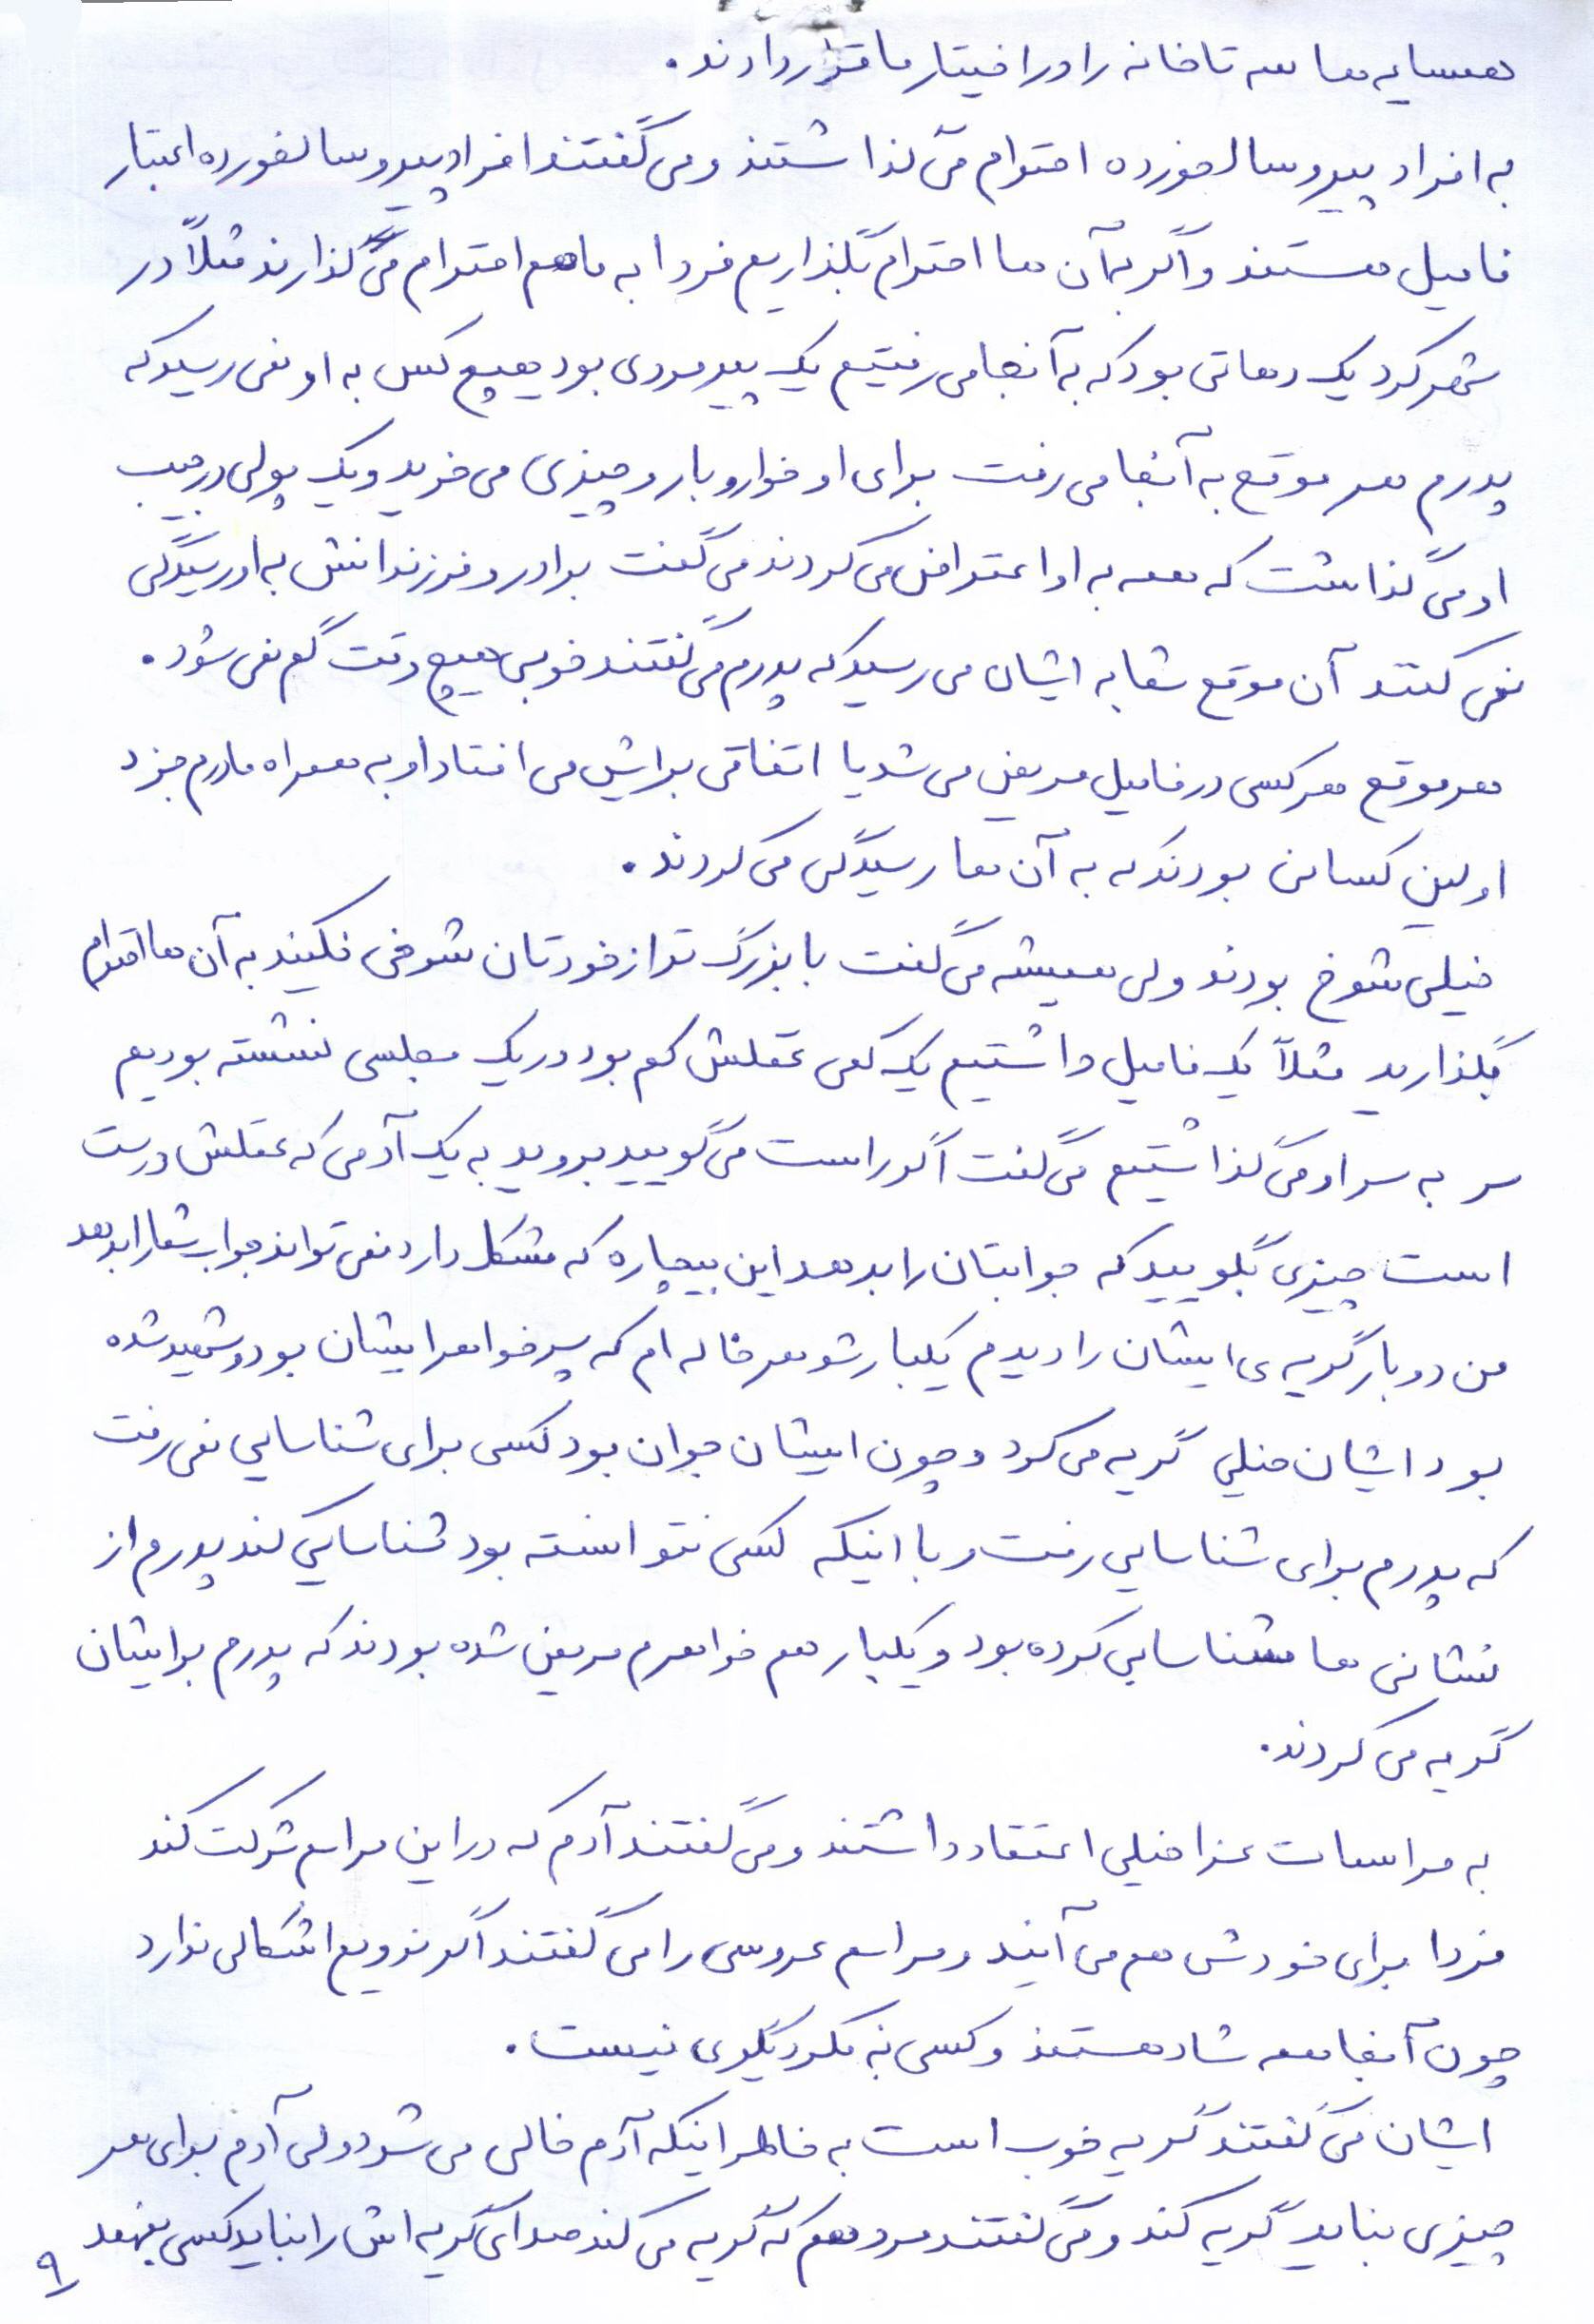 همسایه ها سه تا خانه را در اختیار ما قرار دادند.
به افراد پیر و سالخورده احترام می گذاشتند و می گفتند افراد پیر و سالخورده اعتبار
فامیل هستند و اگر به آن ها احترام بگذاریم فردا به ما هم احترام می گذارند مثلاً در
شهرکرد یک دهاتی بود که به آنجا می رفتیم یک پیرمردی بود هیچ کس به او نمی رسید که
پدرم هر موقع به آنجا می رفت برای او خواروبار و چیزی می خرید و یک پولی در جیب
او می گذاشت که همه به او اعتراض می کردند می گفت برادر و فرزندانش به او رسیدگی
نمی کنند آن موقع شما به ایشان می رسید که پدرم می گفتند خوبی هیچ وقت گم نمی شود.
هر موقع هر کسی در فامیل مریض می شد یا اتفاقی برایش می افتاد او به همراه مادرم جزء
اولین کسانی بودند که به آن ها رسیدگی می کردند.
خیلی شوخ بودند ولی همیشه می گفت با بزرگ تر از خودتان شوخی نکنید به آن ها احترام
بگذارید مثلاً یک فامیل داشتیم یک کمی عقلش کم بود در یک مجلسی نشسته بودیم
سر به سر او می گذاشتیم می گفت اگر راست می گویید بروید به یک آدمی که عقلش درست
است چیزی بگویید که جوابتان را بدهد این بیچاره که مشکل دارد نمی تواند جواب شما را بدهد
من دو بار گریه ی ایشان را دیدم یکبار شوهر خاله ام که پسر خواهر ایشان بود و شهید شده
بود ایشان خیلی گریه می کرد و چون ایشان جوان بود کسی برای شناسایی نمی رفت
که پدرم برای شناسایی رفت و با اینکه کسی نتوانسته بود شناسایی کند پدرم از
نشانی ها شناسایی کرده بود و یکبار هم خواهرم مریض شده بودند که پدرم برایشان
گریه می کردند.
به مراسمات عزا خیلی اعتقاد داشتند و می گفتند آدم که در این مراسم شرکت کند
فردا برای خودش هم می آیند و مراسم عروسی را می گفتند اگر نرویم اشکالی ندارد
چون آنجا همه شاد هستند و کسی به فکر دیگری نیست.
ایشان می گفتند گریه خوب است به خاطر اینکه آدم خالی می شود ولی آدم برای هر
چیزی نباید گریه کند و می گفتند مرد هم که گریه می کند صدای گریه اش را نباید کسی بفهمد
۹